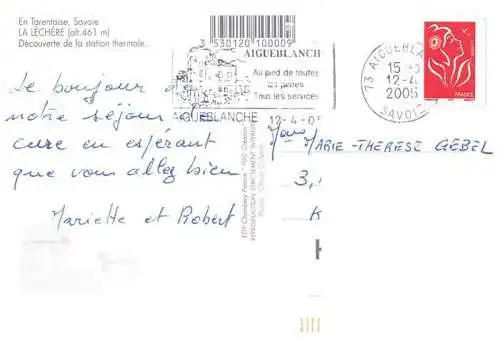 En Tarentaise, Savoie
LA LÉCHÈRE (alt.461 m)
Découverte de la station thermale.
3 530120 100009
AIGUEBLANCH
Au pied de toutes
les pistes
Tous les services
AIGUEBLANCHE 12-4-05
73 AIGUEBLAN
15
12-4
2005
SAVOIE
FRANCE
Le bonjour de
notre séjour de
cure en espérant
que vous allez bien
Mariette et Robert
EDY Chambéry France
REPRODUCTION STRICTEMENT INTERDITE
MARIE-THERESE GEBEL
3,
K